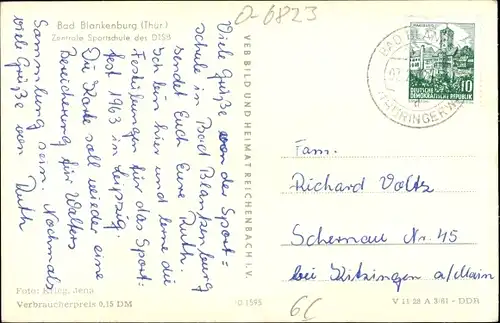 O-6823
Bad Blankenburg (Thür.)
Zentrale Sportschule des DTSB
Viele Grüße von der Sport=
schule in Bad Blankenburg
sendet Euch Eure Ruth.
Ich bin hier und lerne die
Festübungen für das Sport=
fest 1963 in Leipzig.
Die Karte soll wieder eine
Bereicherung für Walters
Sammlung sein. Nochmals
viele Grüße von Ruth
Foto: Krieg, Jena
Verbraucherpreis 0,15 DM
VEB BILD UND HEIMAT REICHENBACH I. V.
D 1595
6C
BAD BLANK
THÜRINGERW
DEUTSCHE
DEMOKRATISCHE REPUBLIK
10
Fam.
Richard Voltz
Schernau Nr. 45
bei Kitzingen a/Main
V 11 28 A 3/61 - DDR